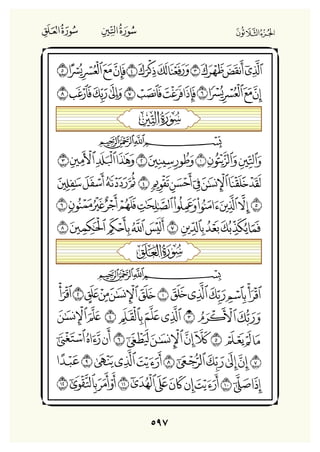 الجُزءُ الثَّلَاثُونَ سُورَةُ التِّينِ سُورَةُ العَلَقِ
ٱلَّذِىٓ أَنقَضَ ظَهْرَكَ ٣ وَرَفَعْنَا لَكَ ذِكْرَكَ ٤ فَإِنَّ مَعَ ٱلْعُسْرِ يُسْرًا ٥
إِنَّ مَعَ ٱلْعُسْرِ يُسْرًا ٦ فَإِذَا فَرَغْتَ فَٱنصَبْ ٧ وَإِلَىٰ رَبِّكَ فَٱرْغَب ٨
سُورَةُ التِّينِ
بِسْمِ ٱللَّهِ ٱلرَّحْمَٰنِ ٱلرَّحِيمِ
وَٱلتِّينِ وَٱلزَّيْتُونِ ١ وَطُورِ سِينِينَ ٢ وَهَٰذَا ٱلْبَلَدِ ٱلْأَمِينِ ٣
لَقَدْ خَلَقْنَا ٱلْإِنسَٰنَ فِىٓ أَحْسَنِ تَقْوِيمٍ ٤ ثُمَّ رَدَدْنَٰهُ أَسْفَلَ سَٰفِلِينَ
٥ إِلَّا ٱلَّذِينَ ءَامَنُوا۟ وَعَمِلُوا۟ ٱلصَّٰلِحَٰتِ فَلَهُمْ أَجْرٌ غَيْرُ مَمْنُونٍ ٦
فَمَا يُكَذِّبُكَ بَعْدُ بِٱلدِّينِ ٧ أَلَيْسَ ٱللَّهُ بِأَحْكَمِ ٱلْحَٰكِمِينَ ٨
سُورَةُ العَلَقِ
بِسْمِ ٱللَّهِ ٱلرَّحْمَٰنِ ٱلرَّحِيمِ
ٱقْرَأْ بِٱسْمِ رَبِّكَ ٱلَّذِى خَلَقَ ١ خَلَقَ ٱلْإِنسَٰنَ مِنْ عَلَقٍ ٢ ٱقْرَأْ
وَرَبُّكَ ٱلْأَكْرَمُ ٣ ٱلَّذِى عَلَّمَ بِٱلْقَلَمِ ٤ عَلَّمَ ٱلْإِنسَٰنَ
مَا لَمْ يَعْلَمْ ٥ كَلَّآ إِنَّ ٱلْإِنسَٰنَ لَيَطْغَىٰٓ ٦ أَن رَّءَاهُ ٱسْتَغْنَىٰٓ
٧ إِنَّ إِلَىٰ رَبِّكَ ٱلرُّجْعَىٰٓ ٨ أَرَءَيْتَ ٱلَّذِى يَنْهَىٰ ٩ عَبْدًا
إِذَا صَلَّىٰٓ ١٠ أَرَءَيْتَ إِن كَانَ عَلَى ٱلْهُدَىٰٓ ١١ أَوْ أَمَرَ بِٱلتَّقْوَىٰٓ ١٢
٥٩٧